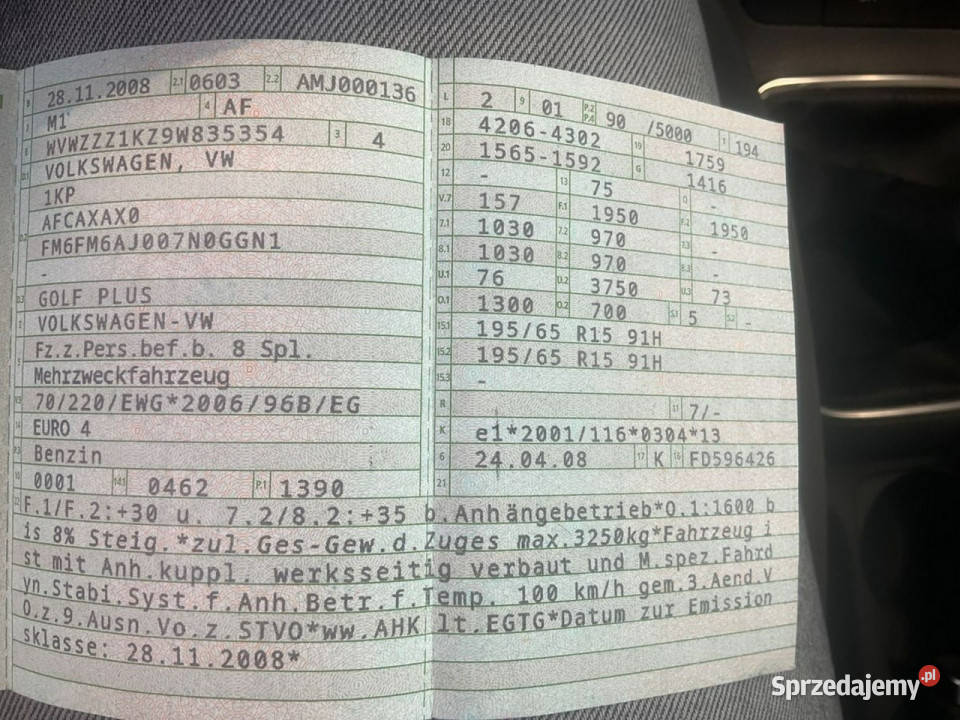 B 28.11.2008 2.1 0603 2.2 AMJ000136
J M1 4 AF
E WVWZZZ1KZ9W835354 3 4
D.1 VOLKSWAGEN, VW
1KP
D.2 AFCAXAX0
FM6FM6AJ007N0GGN1
-
D.3 GOLF PLUS
2 VOLKSWAGEN-VW
5 Fz.z.Pers.bef.b. 8 Spl.
Mehrzweckfahrzeug
V.9 70/220/EWG*2006/96B/EG
14 EURO 4
P.3 Benzin
10 0001 14.1 0462 P.1 1390
L 2 9 01 P.2 P.4 90 /5000 T 194
18 4206-4302 19 1759
20 1565-1592 G 1416
12 - 13 75 Q -
V.7 157 F.1 1950 F.2 1950
7.1 1030 7.2 970 7.3 -
8.1 1030 8.2 970 8.3 -
U.1 76 U.2 3750 U.3 73
O.1 1300 O.2 700 S.1 5 S.2 -
15.1 195/65 R15 91H
15.2 195/65 R15 91H
15.3 -
R 11 7/-
K e1*2001/116*0304*13
6 24.04.08 17 K 16 FD596426
21
22 F.1/F.2:+30 u. 7.2/8.2:+35 b.Anhängebetrieb*O.1:1600 b
is 8% Steig.*zul.Ges-Gew.d.Zuges max.3250kg*Fahrzeug i
st mit Anh.kuppl. werksseitig verbaut und M.spez.Fahrd
yn.Stabi.Syst.f.Anh.Betr.f.Temp. 100 km/h gem.3.Aend.V
O.z.9.Ausn.Vo.z.STVO*ww.AHK lt.EGTG*Datum zur Emission
sklasse: 28.11.2008*
Sprzedajemy.pl